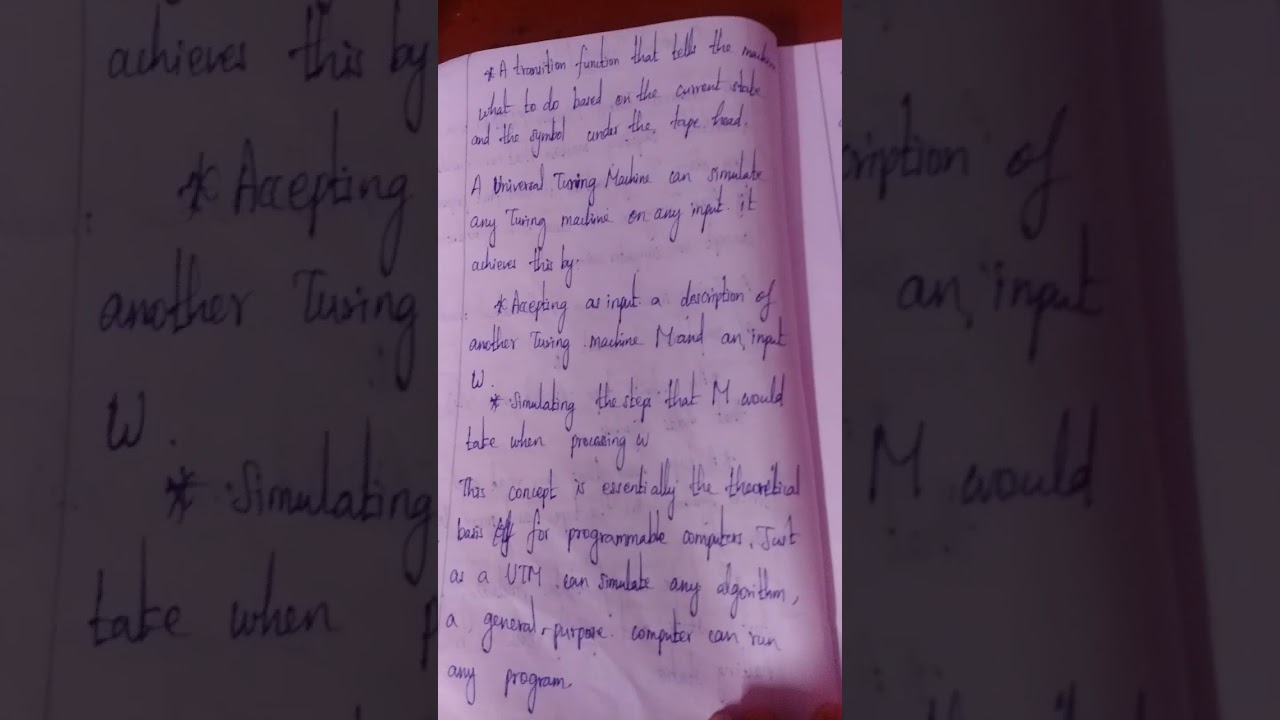 * A transition function that tells the machine
what to do based on the current state
and the symbol under the tape head.
A Universal Turing Machine can simulate
any Turing machine on any input. it
achieves this by:
* Accepting as input a description of
another Turing machine M and an input
W.
* Simulating the steps that M would
take when processing w
This concept is essentially the theoretical
basis for programmable computers. Just
as a UTM can simulate any algorithm,
a general-purpose computer can run
any program.